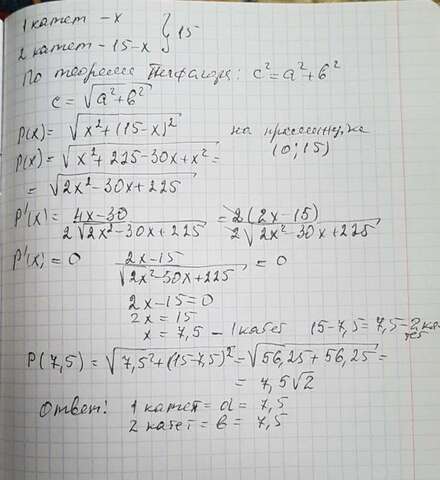 1 катет - x } 15
2 катет - 15-x
По теореме Пифагора: c² = a² + b²
c = √(a² + b²)
P(x) = √(x² + (15-x)²) на промежутке
P(x) = √(x² + 225 - 30x + x²) = (0; 15)
= √(2x² - 30x + 225)
P'(x) = (4x-30)/(2√(2x² - 30x + 225)) = 2(2x-15)/(2√(2x² - 30x + 225))
P'(x) = 0 (2x-15)/√(2x² - 30x + 225) = 0
2x - 15 = 0
2x = 15
x = 7,5 - 1 катет 15 - 7,5 = 7,5 - 2 катет
P(7,5) = √(7,5² + (15-7,5)²) = √(56,25 + 56,25) =
= 7,5√2
Ответ: 1 катет = a = 7,5
2 катет = b = 7,5